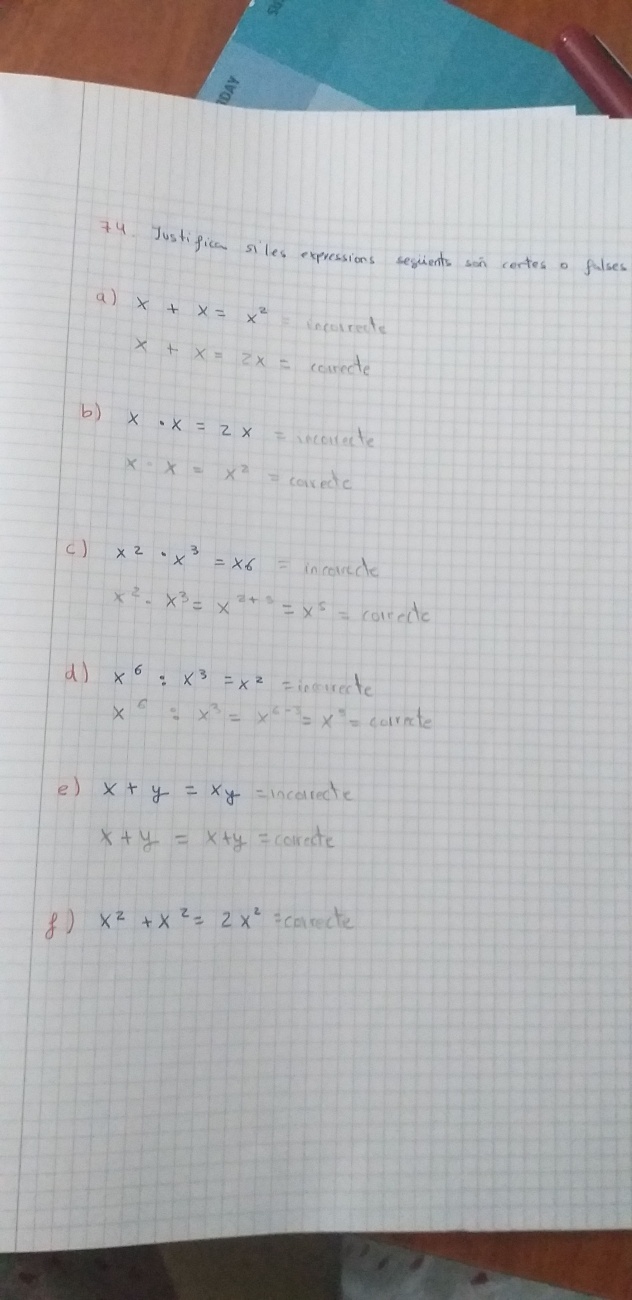 DAY
74. Justifica si les expressions següents són certes o falses
a) x + x = x² = incorrecte
x + x = 2x = correcte
b) x · x = 2x = incorrecte
x · x = x² = correcte
c) x² · x³ = x6 = incorrecte
x² · x³ = x²⁺³ = x⁵ = correcte
d) x⁶ : x³ = x² = incorrecte
x⁶ : x³ = x⁶⁻³ = x³ = correcte
e) x + y = xy = incorrecte
x + y = x+y = correcte
f) x² + x² = 2x² = correcte